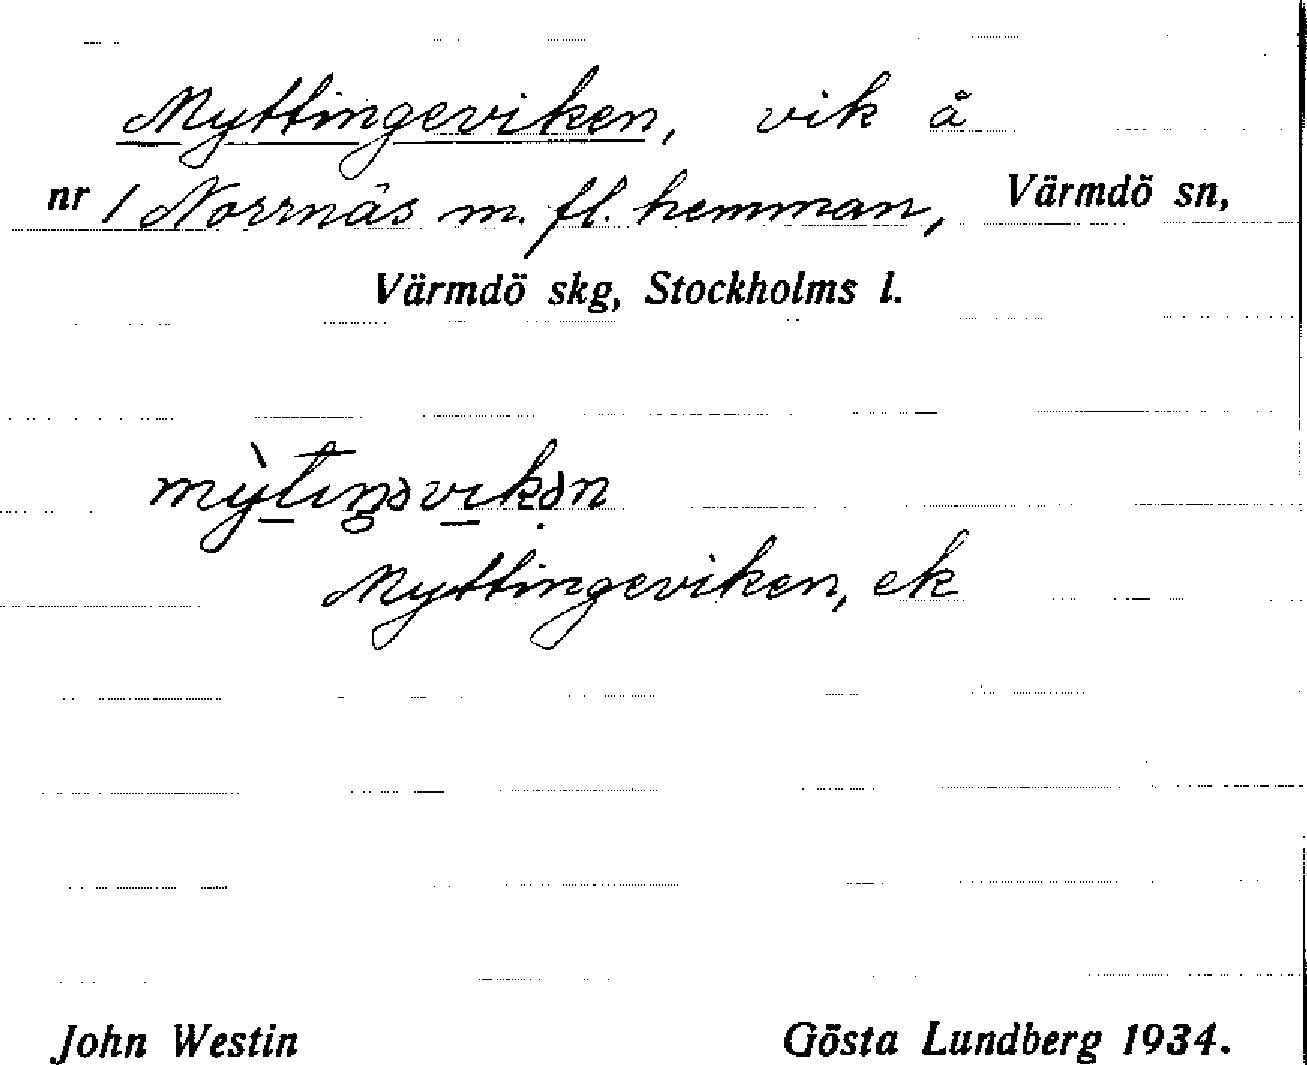 Myttingeviken, vik å
nr 1 Norrnäs m. fl. hemman, Värmdö sn,
Värmdö skg, Stockholms l.
Myttingeviken, ek
John Westin Gösta Lundberg 1934.